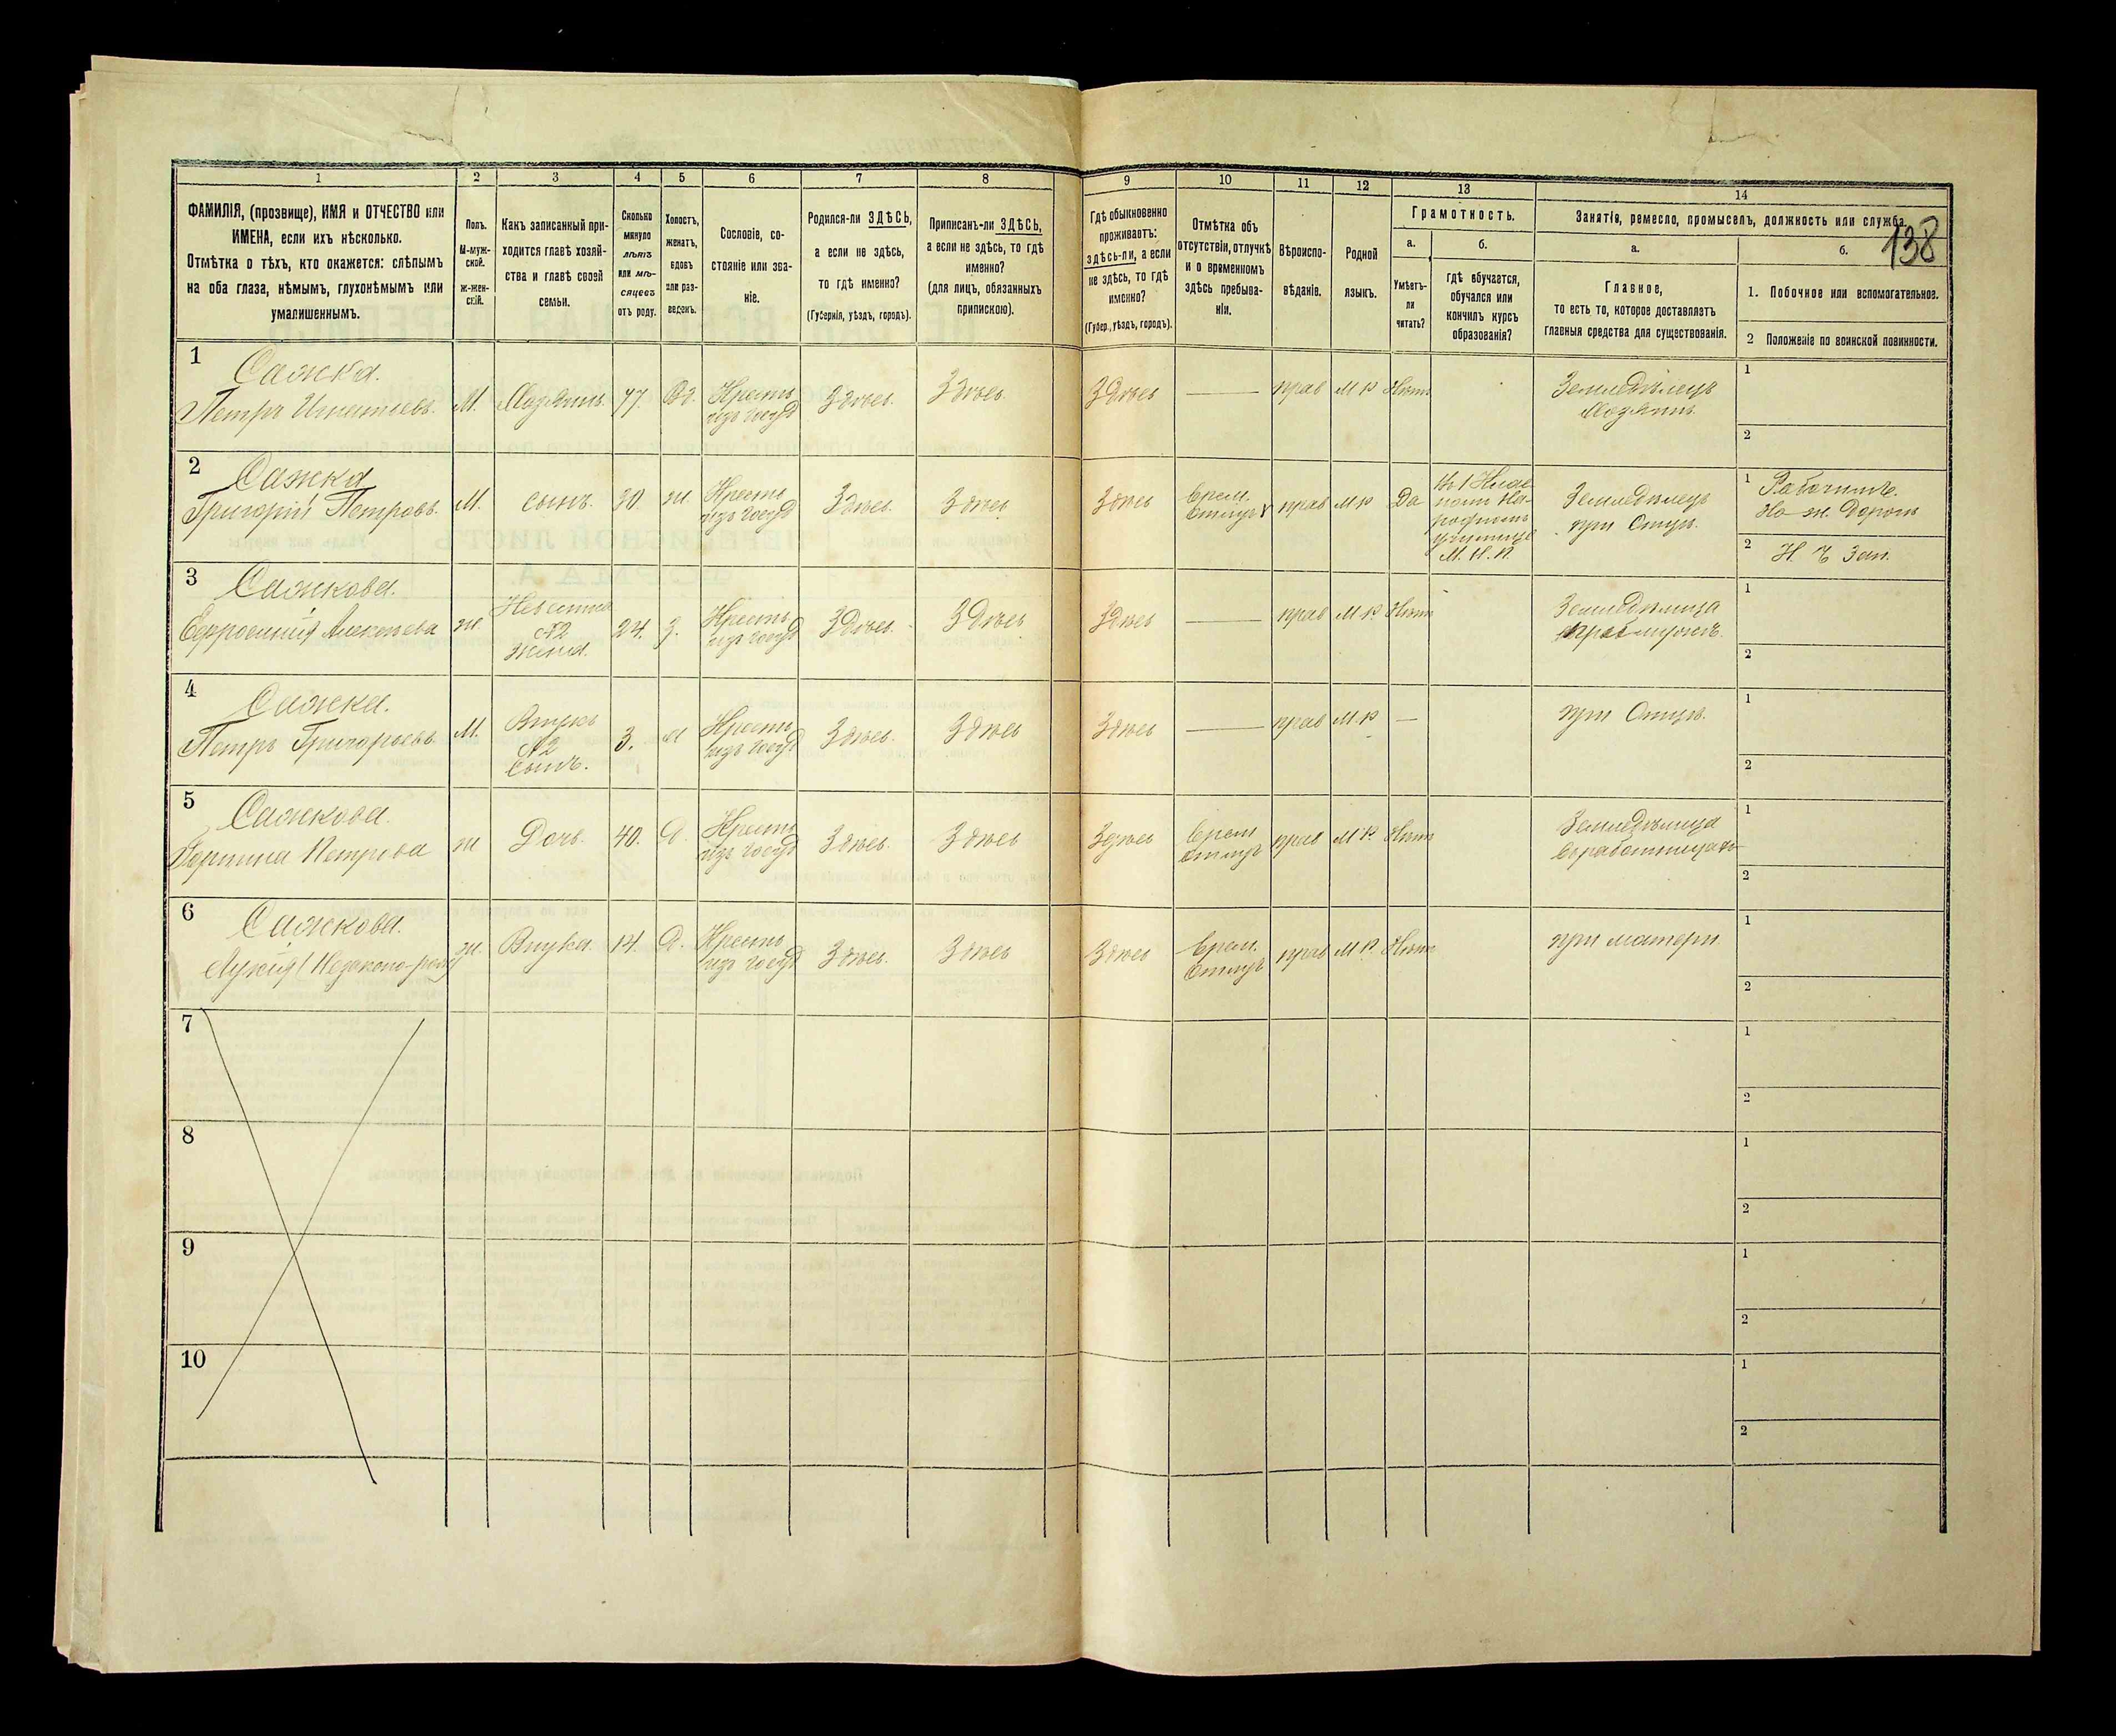 138
1 2 3 4 5 6 7 8 9 10 11 12 13 14
ФАМИЛІЯ, (прозвище), ИМЯ и ОТЧЕСТВО или
ИМЕНА, если ихъ нѣсколько.
Отмѣтка о тѣхъ, кто окажется: слѣпымъ
на оба глаза, нѣмымъ, глухонѣмымъ или
умалишеннымъ.
Полъ.
М-муж-
ской.
Ж-жен-
скій.
Какъ записанный при-
ходится главѣ хозяй-
ства и главѣ своей
семьи.
Сколько
минуло
лѣтъ
или мѣ-
сяцевъ
отъ роду.
Холостъ,
женатъ,
вдовъ
или раз-
веденъ.
Сословіе, со-
стояніе или зва-
ніе.
Родился-ли ЗДѢСЬ,
а если не здѣсь,
то гдѣ именно?
(Губернія, уѣздъ, городъ).
Приписанъ-ли ЗДѢСЬ,
а если не здѣсь, то гдѣ
именно?
(для лицъ, обязанныхъ
припискою).
Гдѣ обыкновенно
проживаетъ:
здѣсь-ли, а если
не здѣсь, то гдѣ
именно?
(Губер., уѣздъ, городъ).
Отмѣтка объ
отсутствіи, отлучкѣ
и о временномъ
здѣсь пребыва-
ніи.
Вѣроиспо-
вѣданіе.
Родной
языкъ.
Грамотность.
а.
Умѣетъ-
ли
читать?
б.
Гдѣ обучается,
обучался или
кончилъ курсъ
образованія?
Занятія, ремесло, промыселъ, должность или служба.
а.
Главное,
то есть то, которое доставляетъ
главныя средства для существованія.
б.
1. Побочное или вспомогательное.
2 Положеніе по воинской повинности.
1
Сажка.
Петръ
М.
Хозяинъ
77.
Вд.
Крестъ
изъ госуд
Здѣсь.
Здѣсь.
Здѣсь
прав
М Р
Нѣтъ
Земледѣлецъ
Хозяинъ
1
2
2
Сажка
Григорій Петровъ.
М.
сынъ.
30.
ж.
Крестъ
изъ госуд
Здѣсь.
Здѣсь
Здѣсь
Врем.
Отлуч
прав
М Р
Да
М. Н. П.
Земледѣлецъ
при Отцѣ.
1
На ж. Дорогѣ
2 Н Ч Зап.
3
Сажкова.
ж.
№2
жена.
24.
З.
Крестъ
изъ госуд
Здѣсь.
Здѣсь
Здѣсь
прав
М Р
Нѣтъ
Земледѣлица
1
2
4
Сажка.
Петръ Григорьевъ
М.
Внукъ
№2
Сынъ.
3.
Х
Крестъ
изъ госуд
Здѣсь.
Здѣсь
Здѣсь
прав
М Р
при Отцѣ.
1
2
5
Сажкова.
Петрова
ж
Дочь.
40.
Д.
Крестъ
изъ госуд
Здѣсь.
Здѣсь
Здѣсь
Врем
Отлуч
прав
М Р.
Нѣтъ
Земледѣлица
1
2
6
Сажкова.
ж.
Внука.
14.
Д.
Крестъ
изъ госуд
Здѣсь.
Здѣсь
Здѣсь
Врем.
Отлуч
прав
М Р.
Нѣтъ
при матери
1
2
7
1
2
8
1
2
9
1
2
10
1
2